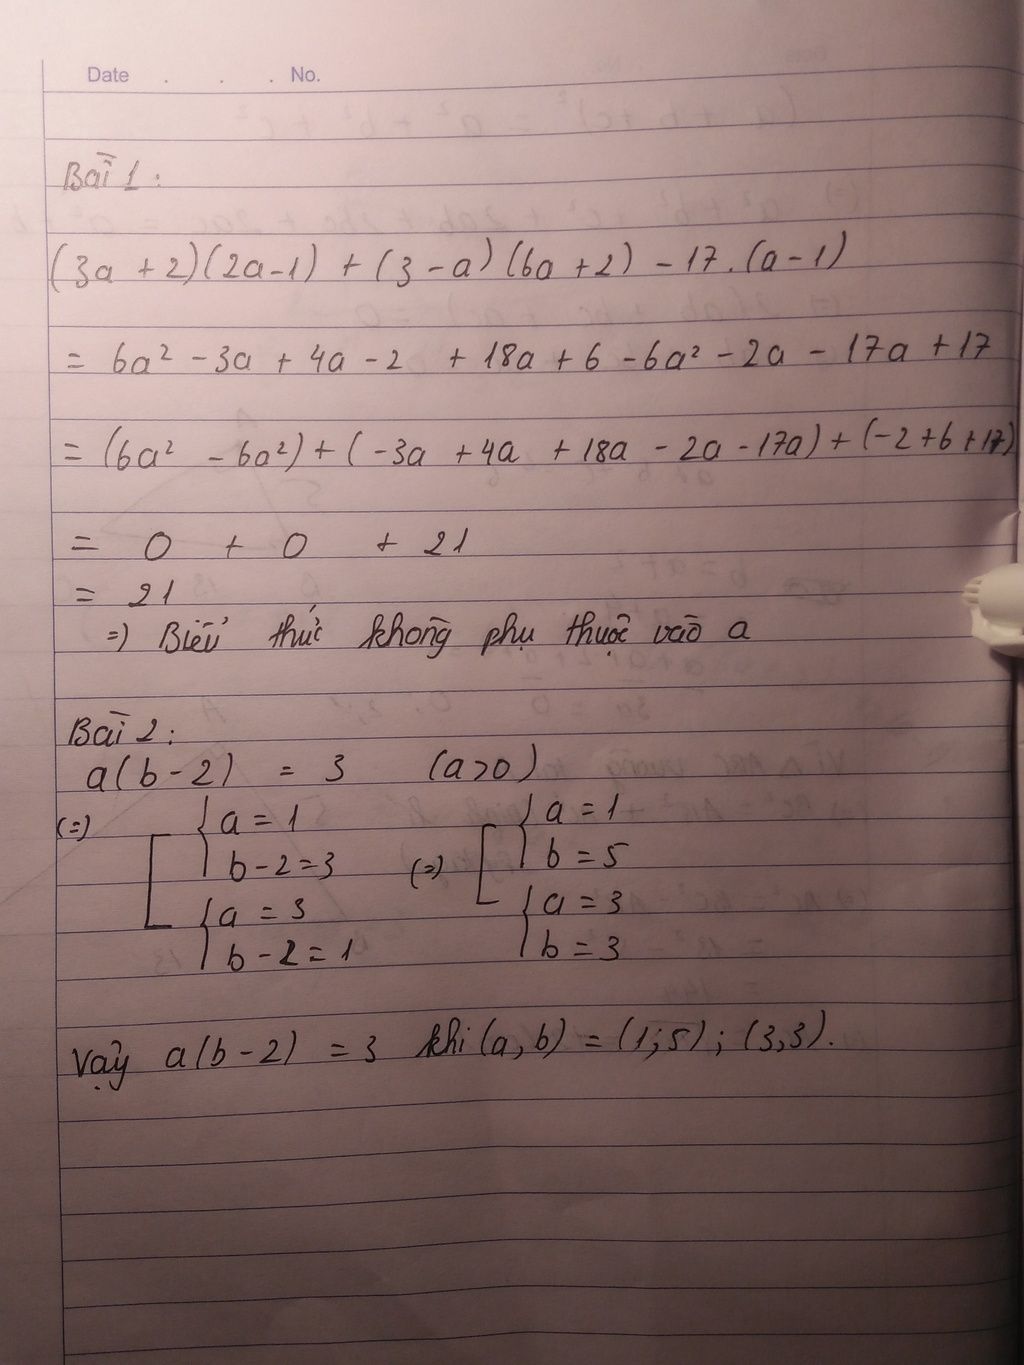 Date . . . No.
Bài 1:
(3a + 2)(2a - 1) + (3 - a)(6a + 2) - 17.(a - 1)
= 6a² - 3a + 4a - 2 + 18a + 6 - 6a² - 2a - 17a + 17
= (6a² - 6a²) + (-3a + 4a + 18a - 2a - 17a) + (-2 + 6 + 17)
= 0 + 0 + 21
= 21
=) Biểu thức không phụ thuộc vào a
Bài 2:
a(b - 2) = 3 (a > 0)
(=) [ { a = 1 (=) [ { a = 1
b - 2 = 3 b = 5
{ a = 3 { a = 3
b - 2 = 1 b = 3
Vậy a(b - 2) = 3 khi (a, b) = (1; 5); (3, 3).